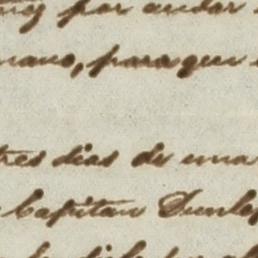 por andar
mano, para que
tres dias de una
Capitan Dunlop